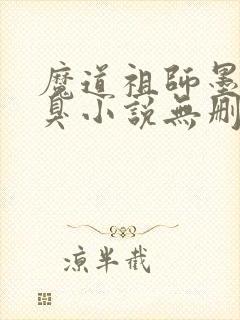 魔道祖師墨
臭小說無刪
凉半截